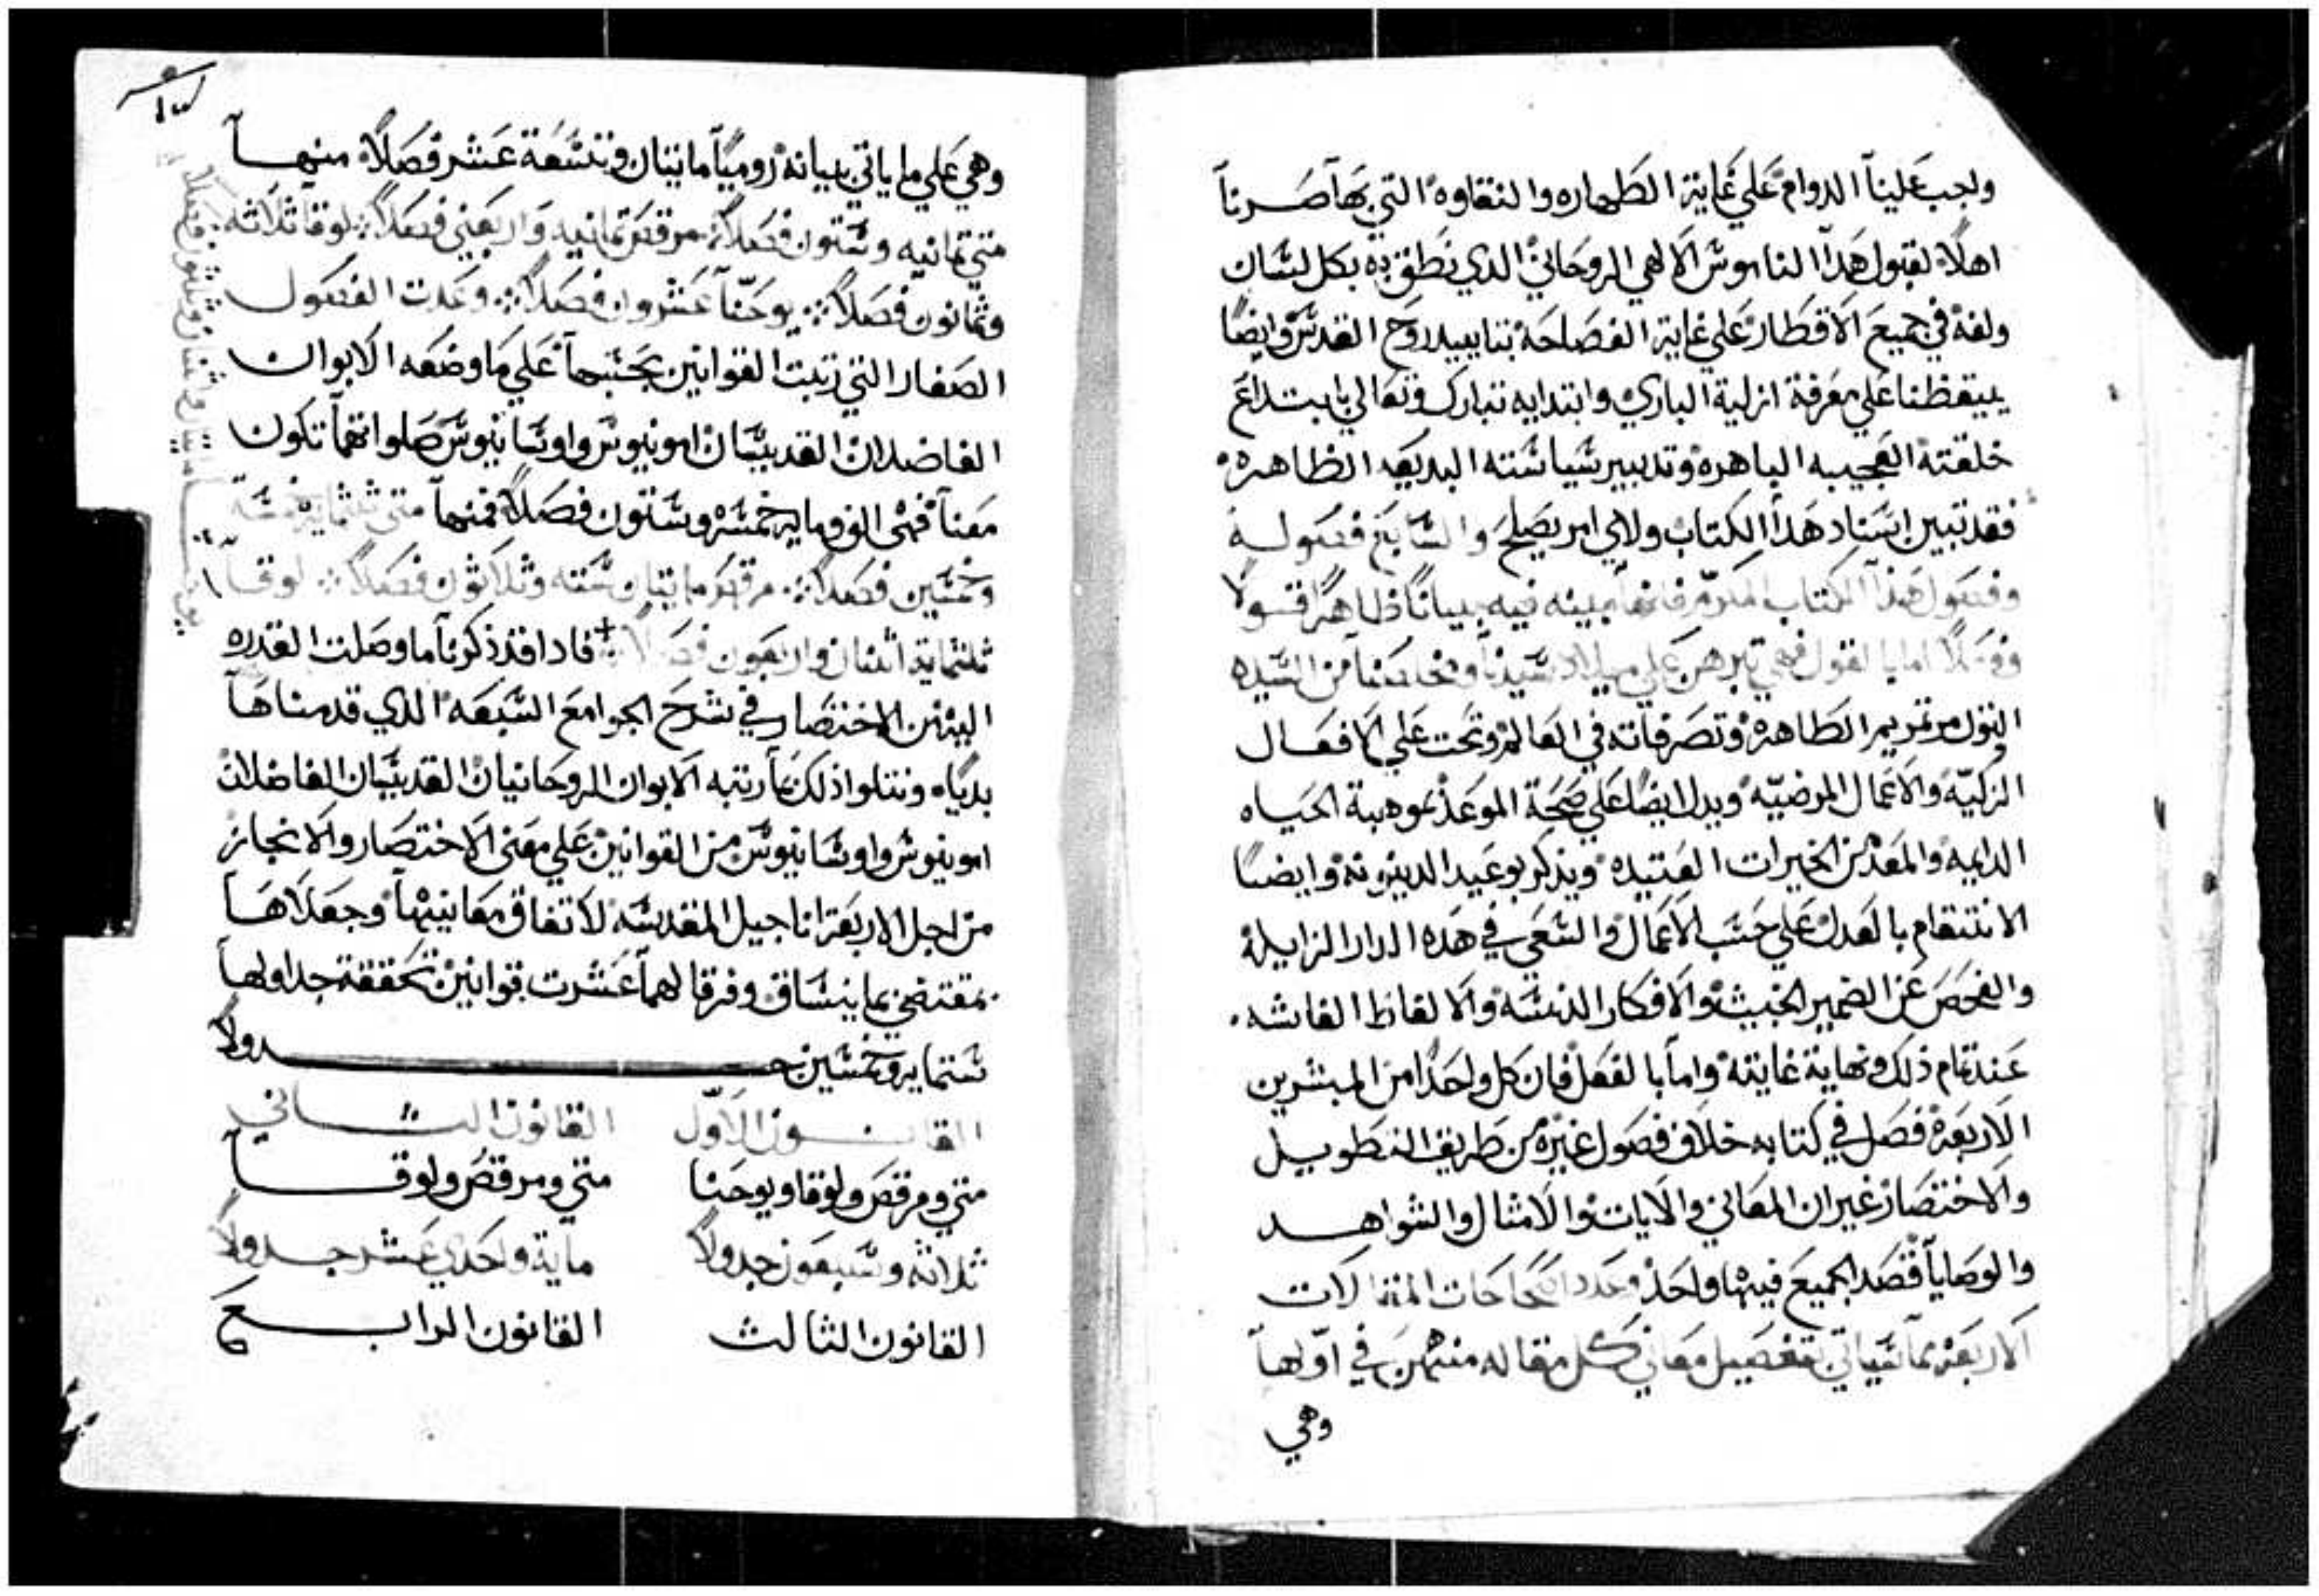 ولجب علينا الدوام علي غاية الطهاره والنقاوه التي بها صرنا
اهلا لقبول هدا الناموس الالهي الروحاني الدي نطق به بكل لسان
ولغة في جميع الاقطار علي غاية الفصاحة بتاييد روح القدس وايضا
ييقظنا علي معرفة ازلية الباري وابتدايه تبارك وتعالي بابتداع
خلقته العجيبه الباهره وتدبير سياسته البديعه الظاهره
فقد تبين اسناد هدا الكتاب ولاي امر يصلح والسابع فصوله
وفصول هدا الكتاب المكرم فانها مبينه فيه بيانا ظاهرا قولا
وفعلا اما بالقول فهي تبرهن علي ميلاد سيدنا ومخلصنا من السيده
البتول مرتمريم الطاهره وتصرفاته في العالم وتحت علي الافعال
الزكيه والاعمال المرضيه ويدل ايضا علي صحة الموعد بموهبة الحياه
الدايمه والمعد من الخيرات العتيده ويذكر بوعيد الدينونه وايضا
الانتقام بالعدل علي حسب الاعمال والسعي في هده الدار الزايلة
والفحص عن الضمير الخبيث والافكار الدنسه والالفاظ الفاشه
عند تمام ذلك ونهاية غايته واما بالفعل فان كل واحدا من المبشرين
الاربعة فصل في كتابه خلاف فصول غيره من طريق التطويل
والاختصار غير ان المعاني والايات والامثال والشواهد
والوصايا قصد الجميع فيها واحد وعدد اصحاحات المقالات
الاربعه بما سياتي تفصيل معاني كل مقاله منهن في اولها
وهي
وهي علي ما ياتي بيانه روميا مايتان وتسعة عشر فصلا منها
متي تمانيه وستون فصلا مرقص تمانيه واربعين فصلا لوقا ثلاثه
وثمانون فصلا يوحنا عشرون فصلا وعدت الفصول
الصغار التي رتبت القوانين بحسبها علي ما وضعه الابوان
الفاضلان القديسان امونيوس واوسانيوس صلواتهما تكون
معنا فهي الف وماية خمسه وستون فصلا فمنها متي ثلثماية خمسة
وخمسين فصلا مرقص مايتان سته وثلاثون فصلا لوقا
ثلثماية اثنان واربعون فصلا فادا قد ذكرنا ما وصلت القدره
اليه من الاختصار في شرح الجوامع السبعه الدي قدمناها
بدياه ونتلوا ذلك بما رتبه الابوان الروحانيان القديسان الفاضلان
امونيوس واوسانيوس من القوانين علي معني الاختصار والانجاز
من اجل الاربعة اناجيل المقدسه لاتفاق معانيها وجعلاها
بمقتضي بما ينساق وفرقا لهما عشرت قوانين تحققة جداولها
ستماية وخمسين جدولا
القانون الاول القانون الثاني
متي ومرقص ولوقا ويوحنا متي ومرقص ولوقا
ثلاثه وسبعون جدولا ماية واحدي عشر جدولا
القانون الثالث القانون الرابع